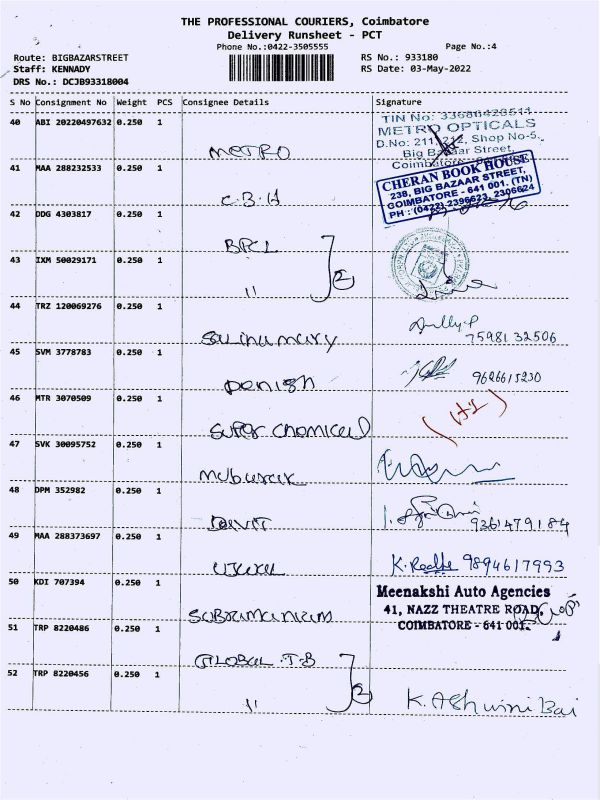 THE PROFESSIONAL COURIERS, Coimbatore
Delivery Runsheet - PCT
Phone No.:0422-3505555
Page No.:4
Route: BIGBAZARSTREET
RS No.: 933180
Staff: KENNADY
RS Date: 03-May-2022
DRS No.: DCJB93318004
S No Consignment No Weight PCS Consignee Details Signature
40 ABI 20220497632 0.250 1
METRO
TIN No: 33686420511
METRO OPTICALS
D.No: 211,212, Shop No-5,
Big Bazaar Street,
Coimbatore
41 MAA 288232533 0.250 1
C.B.H
CHERAN BOOK HOUSE
238, BIG BAZAAR STREET,
COIMBATORE - 641 001. (TN)
PH : (0422) 2396623, 2306624
42 DDG 4303817 0.250 1
BPCL
43 IXM 50029171 0.250 1
" 2
44 TRZ 120069276 0.250 1
Salinamary
75981 32506
45 SVM 3778783 0.250 1
Denish
9626615230
46 MTR 3070509 0.250 1
Super Chemical
47 SVK 30095752 0.250 1
Mubarak
48 DPM 352982 0.250 1
9361479184
49 MAA 288373697 0.250 1
K. Radha 9894617993
50 KDI 707394 0.250 1
Subramaniam
Meenakshi Auto Agencies
41, NAZZ THEATRE ROAD,
COIMBATORE - 641 001.
51 TRP 8220486 0.250 1
GLOBAL T.B
52 TRP 8220456 0.250 1
" 2
K. Ashwini Bai